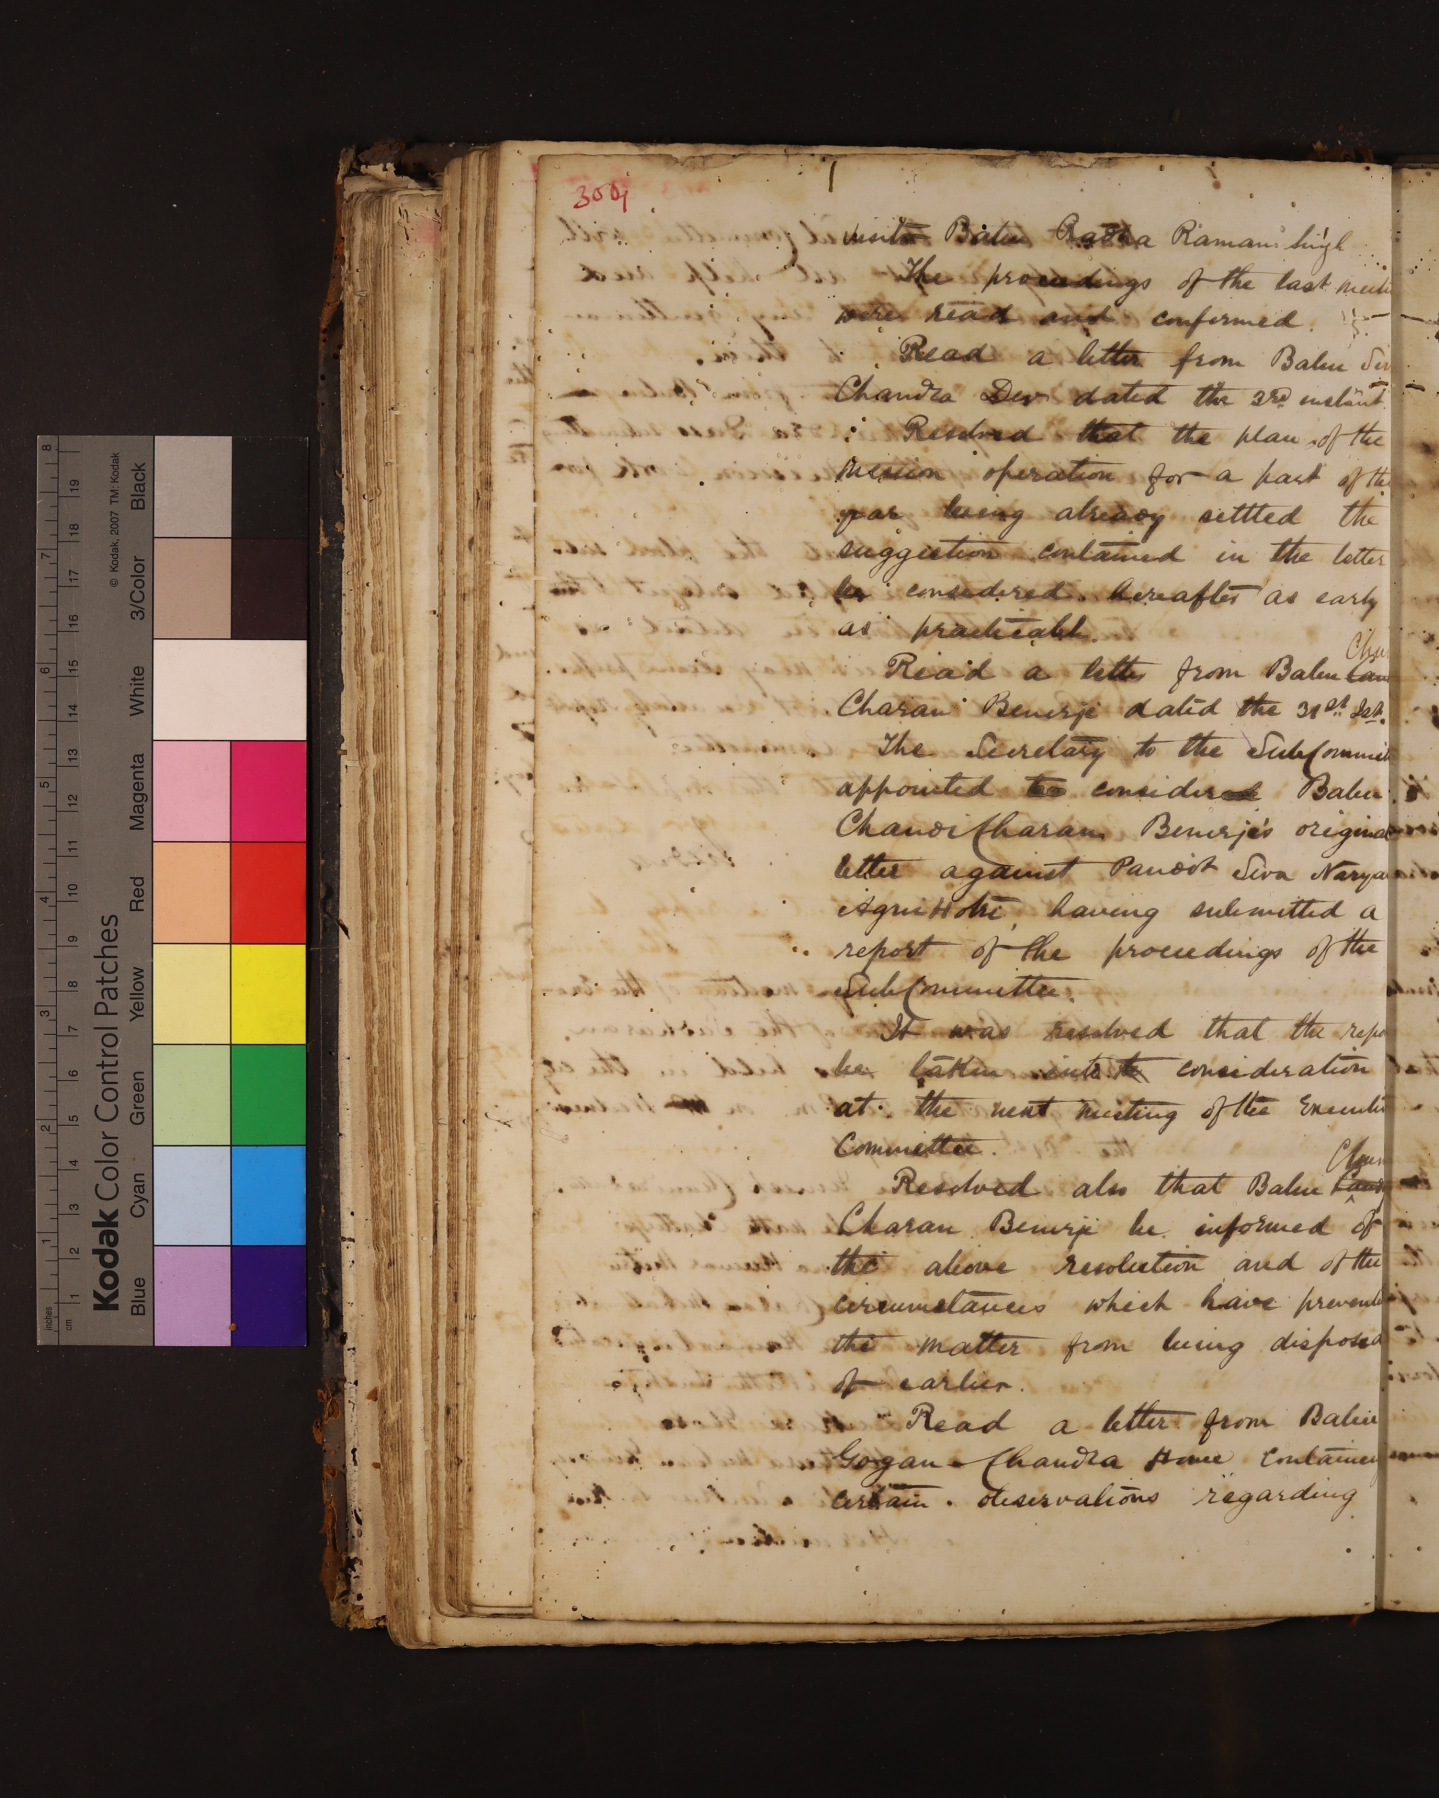 300
visits Babu Radha Raman Singh
The proceedings of the last meeti
were read and confirmed.
Read a letter from Babu Siv
Chandra Dev dated the 3rd instant
Resolved that the plan of the
mission operation for a part of the
year being already settled the
suggestion contained in the letter
be considered hereafter as early
as practicable.
Chan
Read a letter from Babu
Charan Benerji dated the 31st
The Secretary to the SubCommit
appointed to consider Babu
Chandi Charan Benerje's original
letter against Pandit Siva Naryan
AgniHotri, having submitted a
report of the proceedings of the
SubCommittee.
It was resolved that the repo
be taken into the consideration
at the next meeting of the Executi
Committee.
Chan
Resolved also that Babu
Charan Benerji be informed of
the above resolution and of the
circumstances which have prevente
the matter from being disposed
of earlier.
Read a letter from Babu
Gogan Chandra Home containing
certain observations regarding
Kodak Color Control Patches
© Kodak, 2007 TM: Kodak
Blue Cyan Green Yellow Red Magenta White 3/Color Black
inches 1 2 3 4 5 6 7 8
cm 1 2 3 4 5 6 7 8 9 10 11 12 13 14 15 16 17 18 19